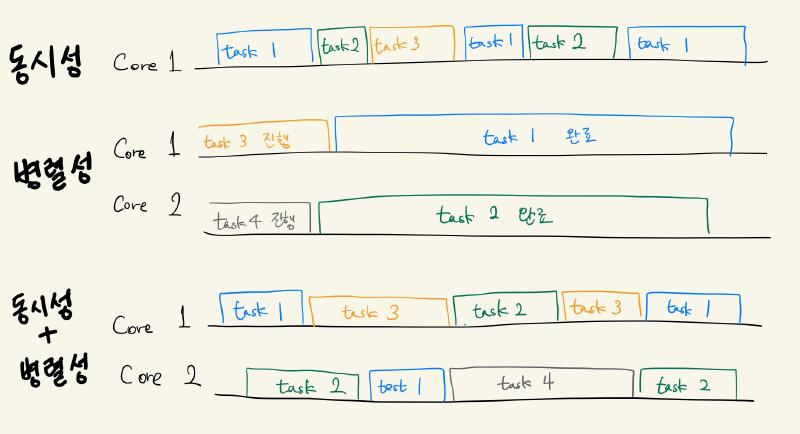 동시성 Core 1 task 1 task2 task 3 task 1 task 2 task 1
병렬성 Core 1 task 3 진행 task 1 완료
Core 2 task 4 진행 task 2 완료
동시성 + 병렬성
Core 1 task 1 task 3 task 2 task 3 task 1
Core 2 task 2 test 1 task 4 task 2